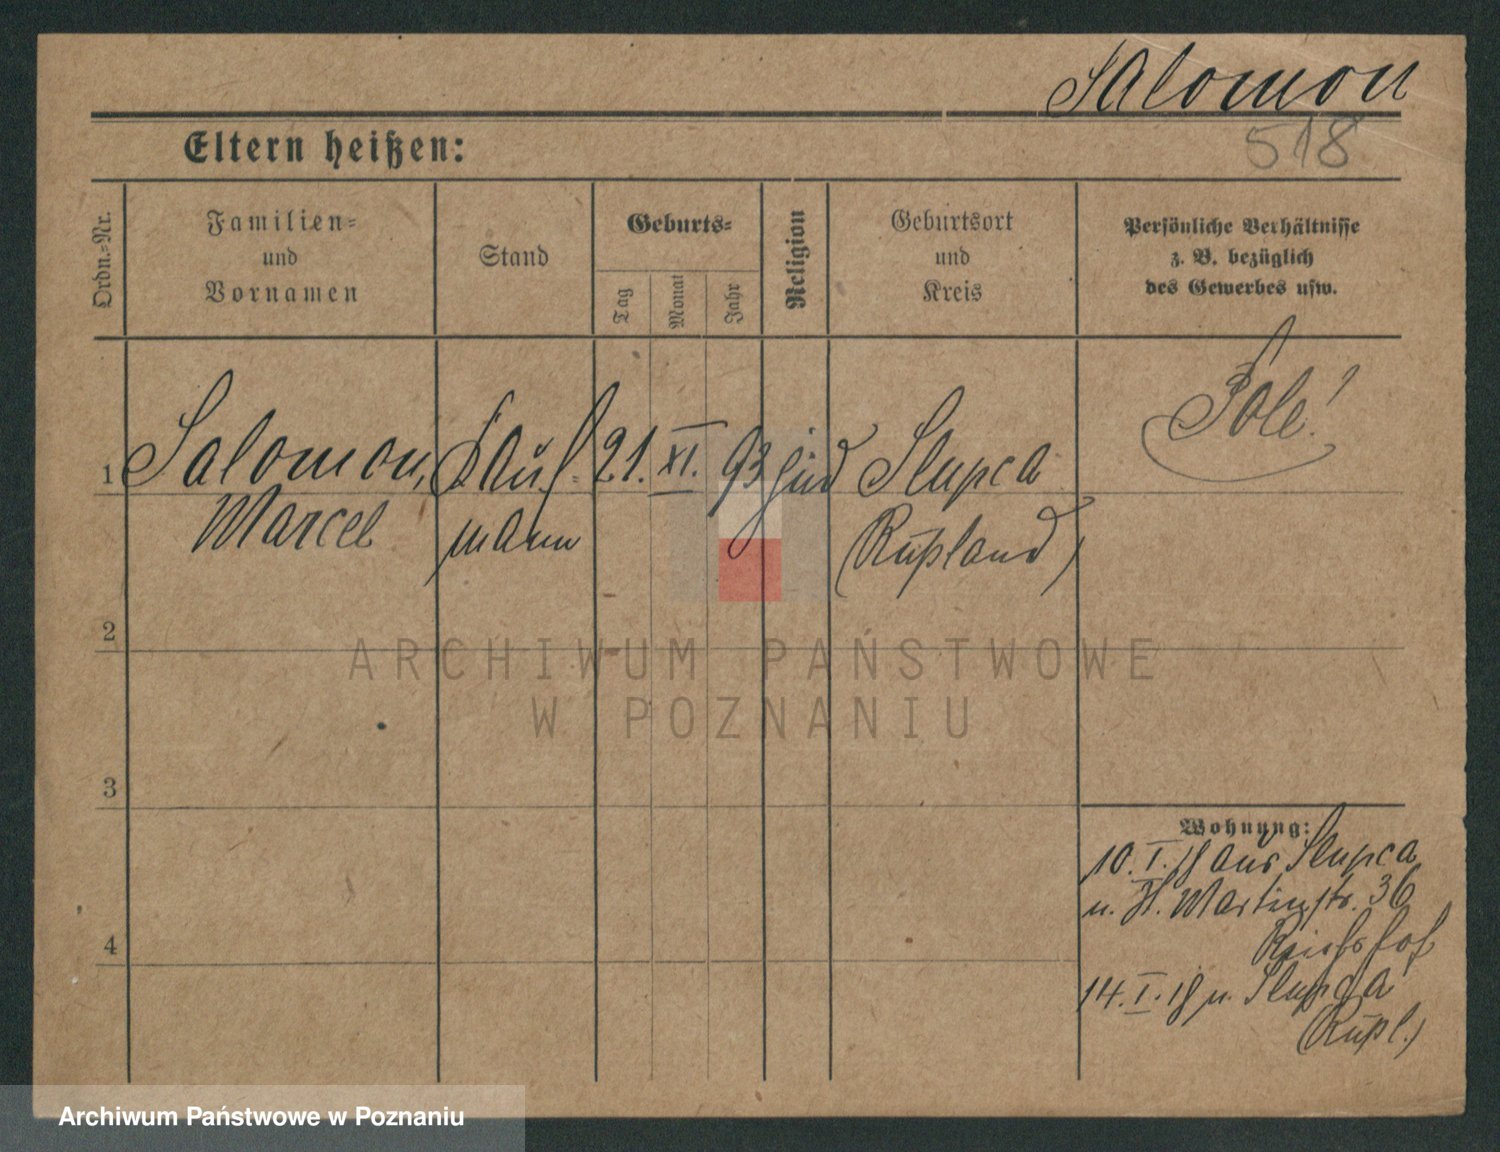 Salomon
518
Eltern heißen:
Ordn.-Nr.
Familien-
und
Vornamen
Stand
Geburts-
Tag
Monat
Jahr
Religion
Geburtsort
und
Kreis
Persönliche Verhältnisse
z. B. bezüglich
des Gewerbes usw.
Pole!
1 Salomon, Kauf- 21. XI. 93 jüd Slupca
Marcel mann (Rußland)
2
ARCHIWUM PAŃSTWOWE
W POZNANIU
3
Wohnung:
10. I. 18 aus Slupca
n. St. Martinstr. 36
Reichshof
4
14. I. 18 n. Slupca
(Rußl.)
Archiwum Państwowe w Poznaniu